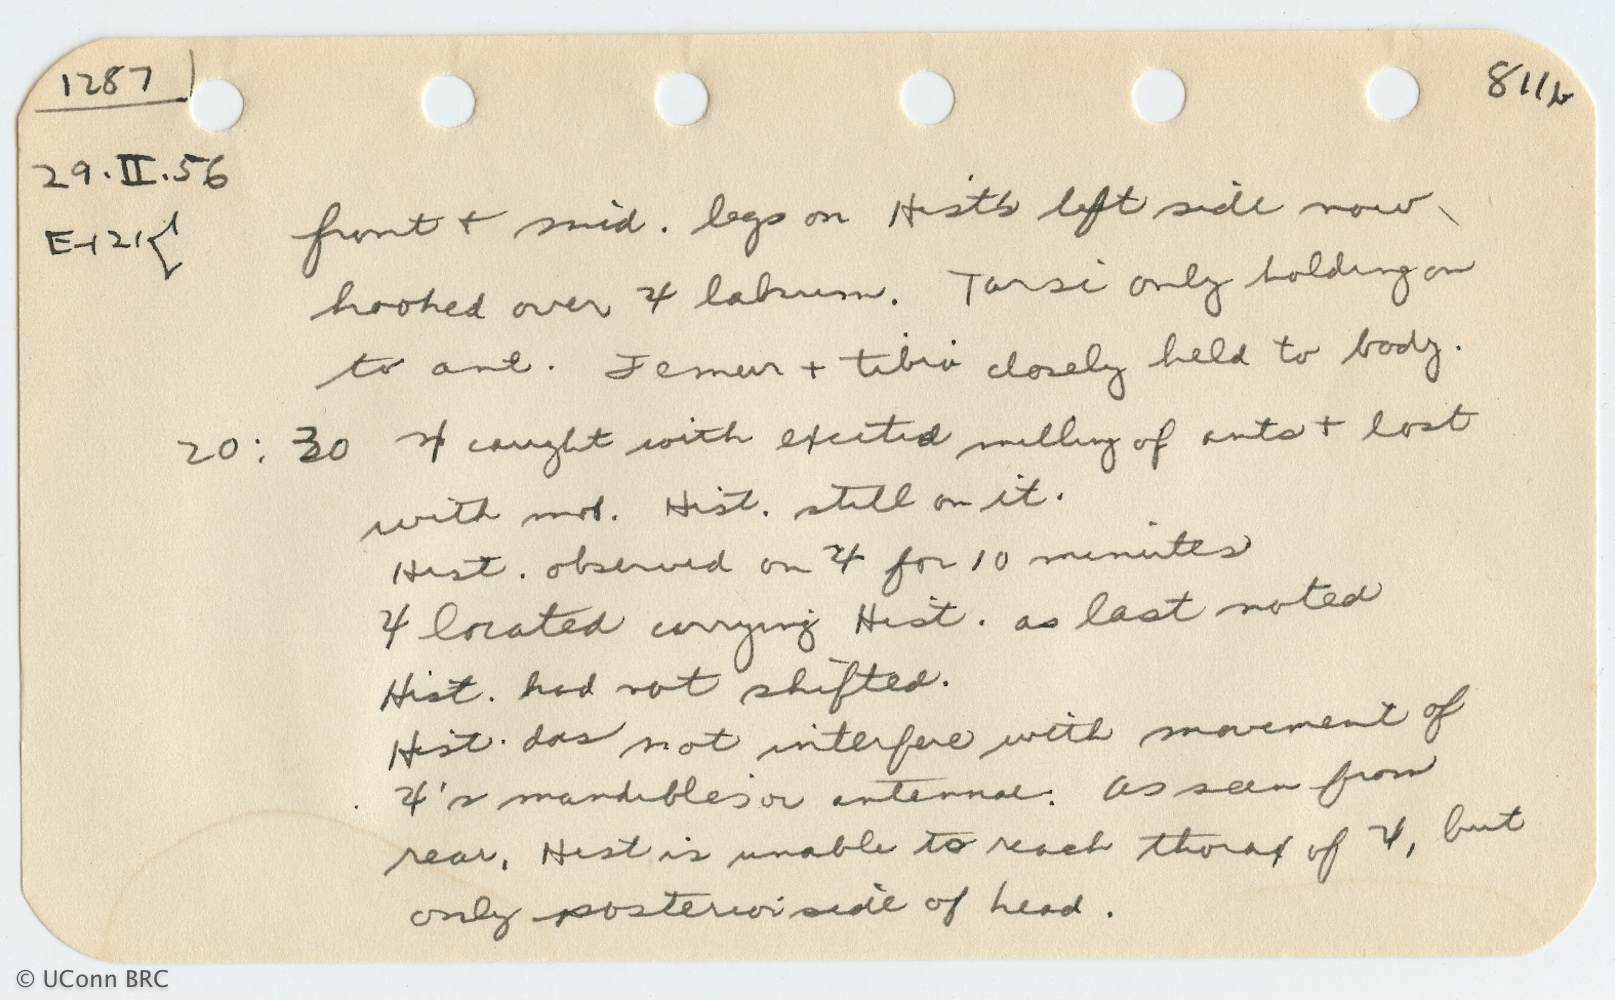 1287
811b
29.II.56
E-121
front + mid. legs on Hist's left side now
hooked over ♃ labrum. Tarsi only holding on
to ant. Femur + tibia closely held to body.
20:30 ♃ caught with excited milling of ants + lost
with mob. Hist. still on it.
Hist. observed on ♃ for 10 minutes
♃ located carrying Hist. as last noted
Hist. had not shifted.
Hist. does not interfere with movement of
♃'s mandibles or antennae. As seen from
rear, Hist is unable to reach thorax of ♃, but
only posterior side of head.
© UConn BRC